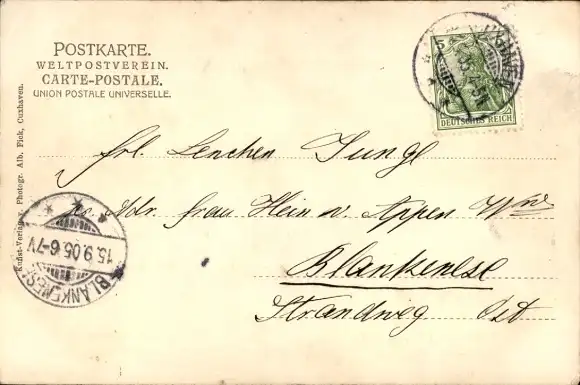 POSTKARTE.
WELTPOSTVEREIN.
CARTE-POSTALE.
UNION POSTALE UNIVERSELLE.
Kunst-Verlag v. Photogr. Alb. Pick, Cuxhaven.
5
DEUTSCHES REICH
Frl. Lenchen Jungl
pr. Adr. Frau Hein v. Appen Wwe
Blankenese
Strandweg Ost
15.9.05.6-7V
BLANKENESE